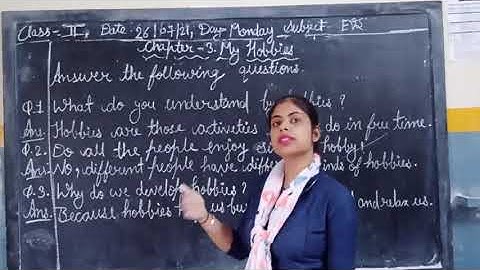 Class-II, Date 26/07/21, Day-Monday Subject EVS
Chapter-3. My Hobbies
Answer the following questions.
Q.1 What do you understand by hobbies ?
Ans. Hobbies are those activeties do in free time.
Q.2. Do all the people enjoy hobby?
Ans. No, different people have different kinds of hobbies.
Q.3. Why do we develop hobbies ?
Ans. Because hobbies us and relax us.